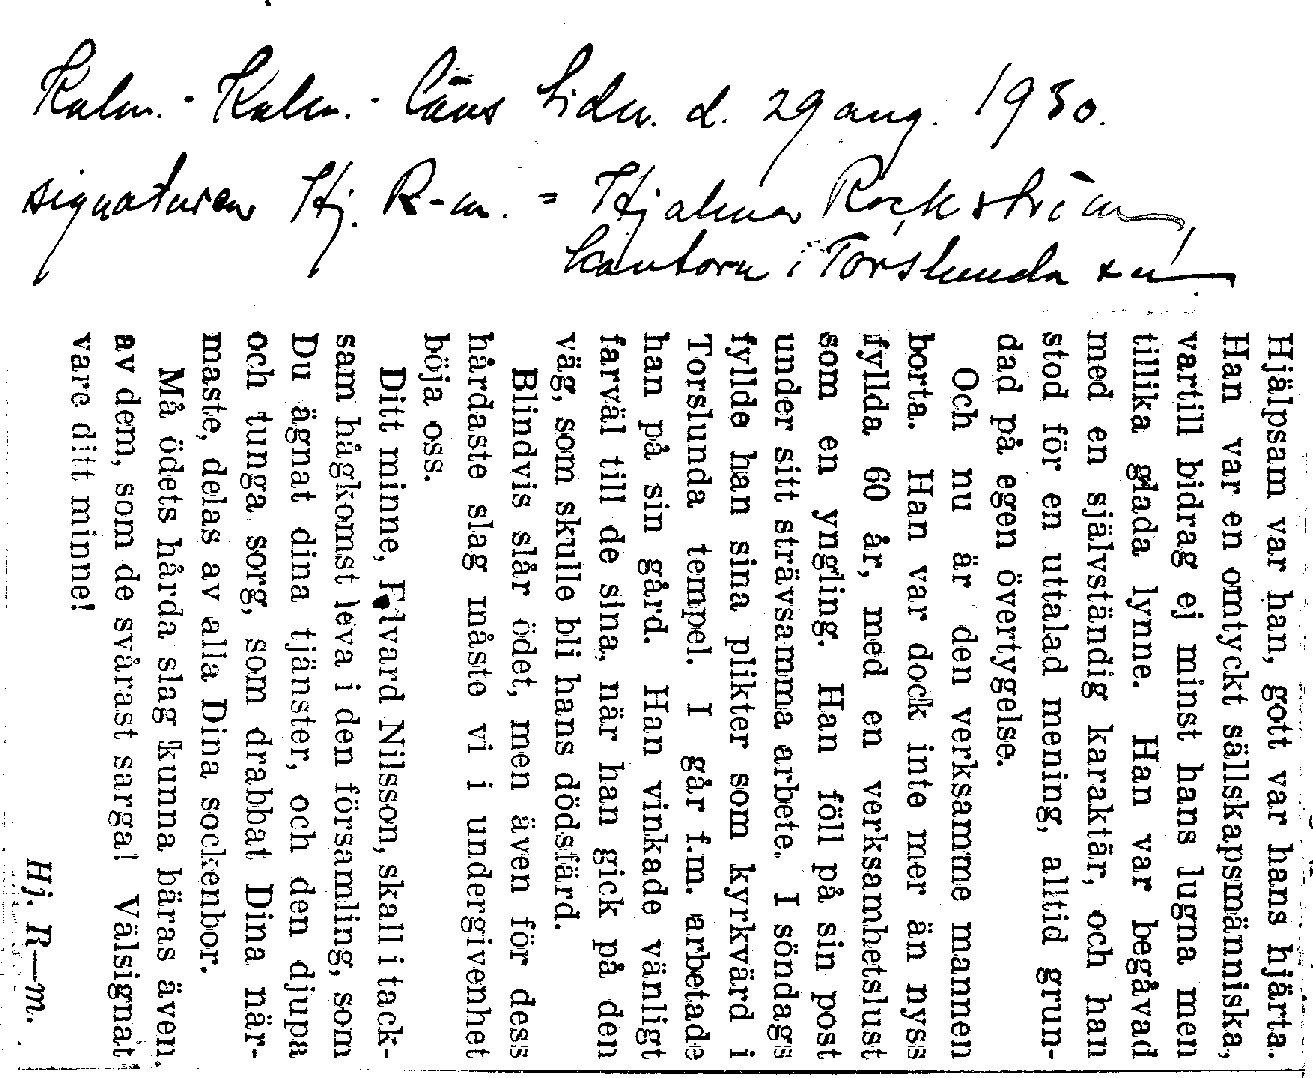 Kalm.-Kalm.-läns tidn. d. 29 aug. 1930.
signaturen Hj. R-m. = Hjalmar Rockström,
kantorn i Torslunda
Hjälpsam var han, gott var hans hjärta.
Han var en omtyckt sällskapsmänniska,
vartill bidrag ej minst hans lugna men
tillika glada lynne. Han var begåvad
med en självständig karaktär, och han
stod för en uttalad mening, alltid grun-
dad på egen övertygelse.
Och nu är den verksamme mannen
borta. Han var dock inte mer än nyss
fyllda 60 år, med en verksamhetslust
som en yngling. Han föll på sin post
under sitt strävsamma arbete. I söndags
fyllde han sina plikter som kyrkvärd i
Torslunda tempel. I går f.m. arbetade
han på sin gård. Han vinkade vänligt
farväl till de sina, när han gick på den
väg, som skulle bli hans dödsfärd.
Blindvis slår ödet, men även för dess
hårdaste slag måste vi i undergivenhet
böja oss.
Ditt minne, Edvard Nilsson, skall i tack-
sam hågkomst leva i den församling, som
Du ägnat dina tjänster, och den djupa
och tunga sorg, som drabbat Dina när-
maste, delas av alla Dina sockenbor.
Må ödets hårda slag kunna bäras även
av dem, som de svårast sarga! Välsignat
vare ditt minne!
Hj. R—m.